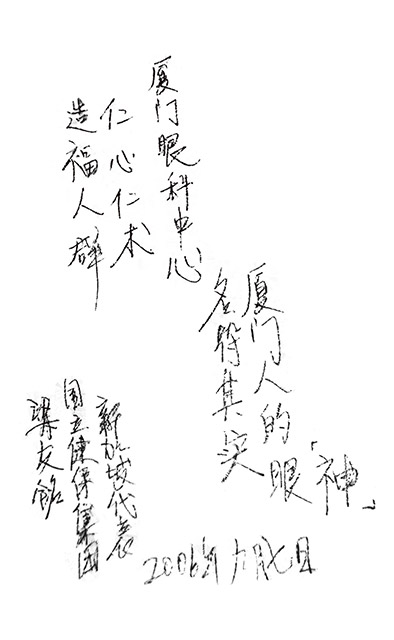 厦门眼科中心
仁心仁术
造福人群
厦门人的眼「神」
名符其实
新加坡代表
国立健保集团
梁友铭
2006年九月七日